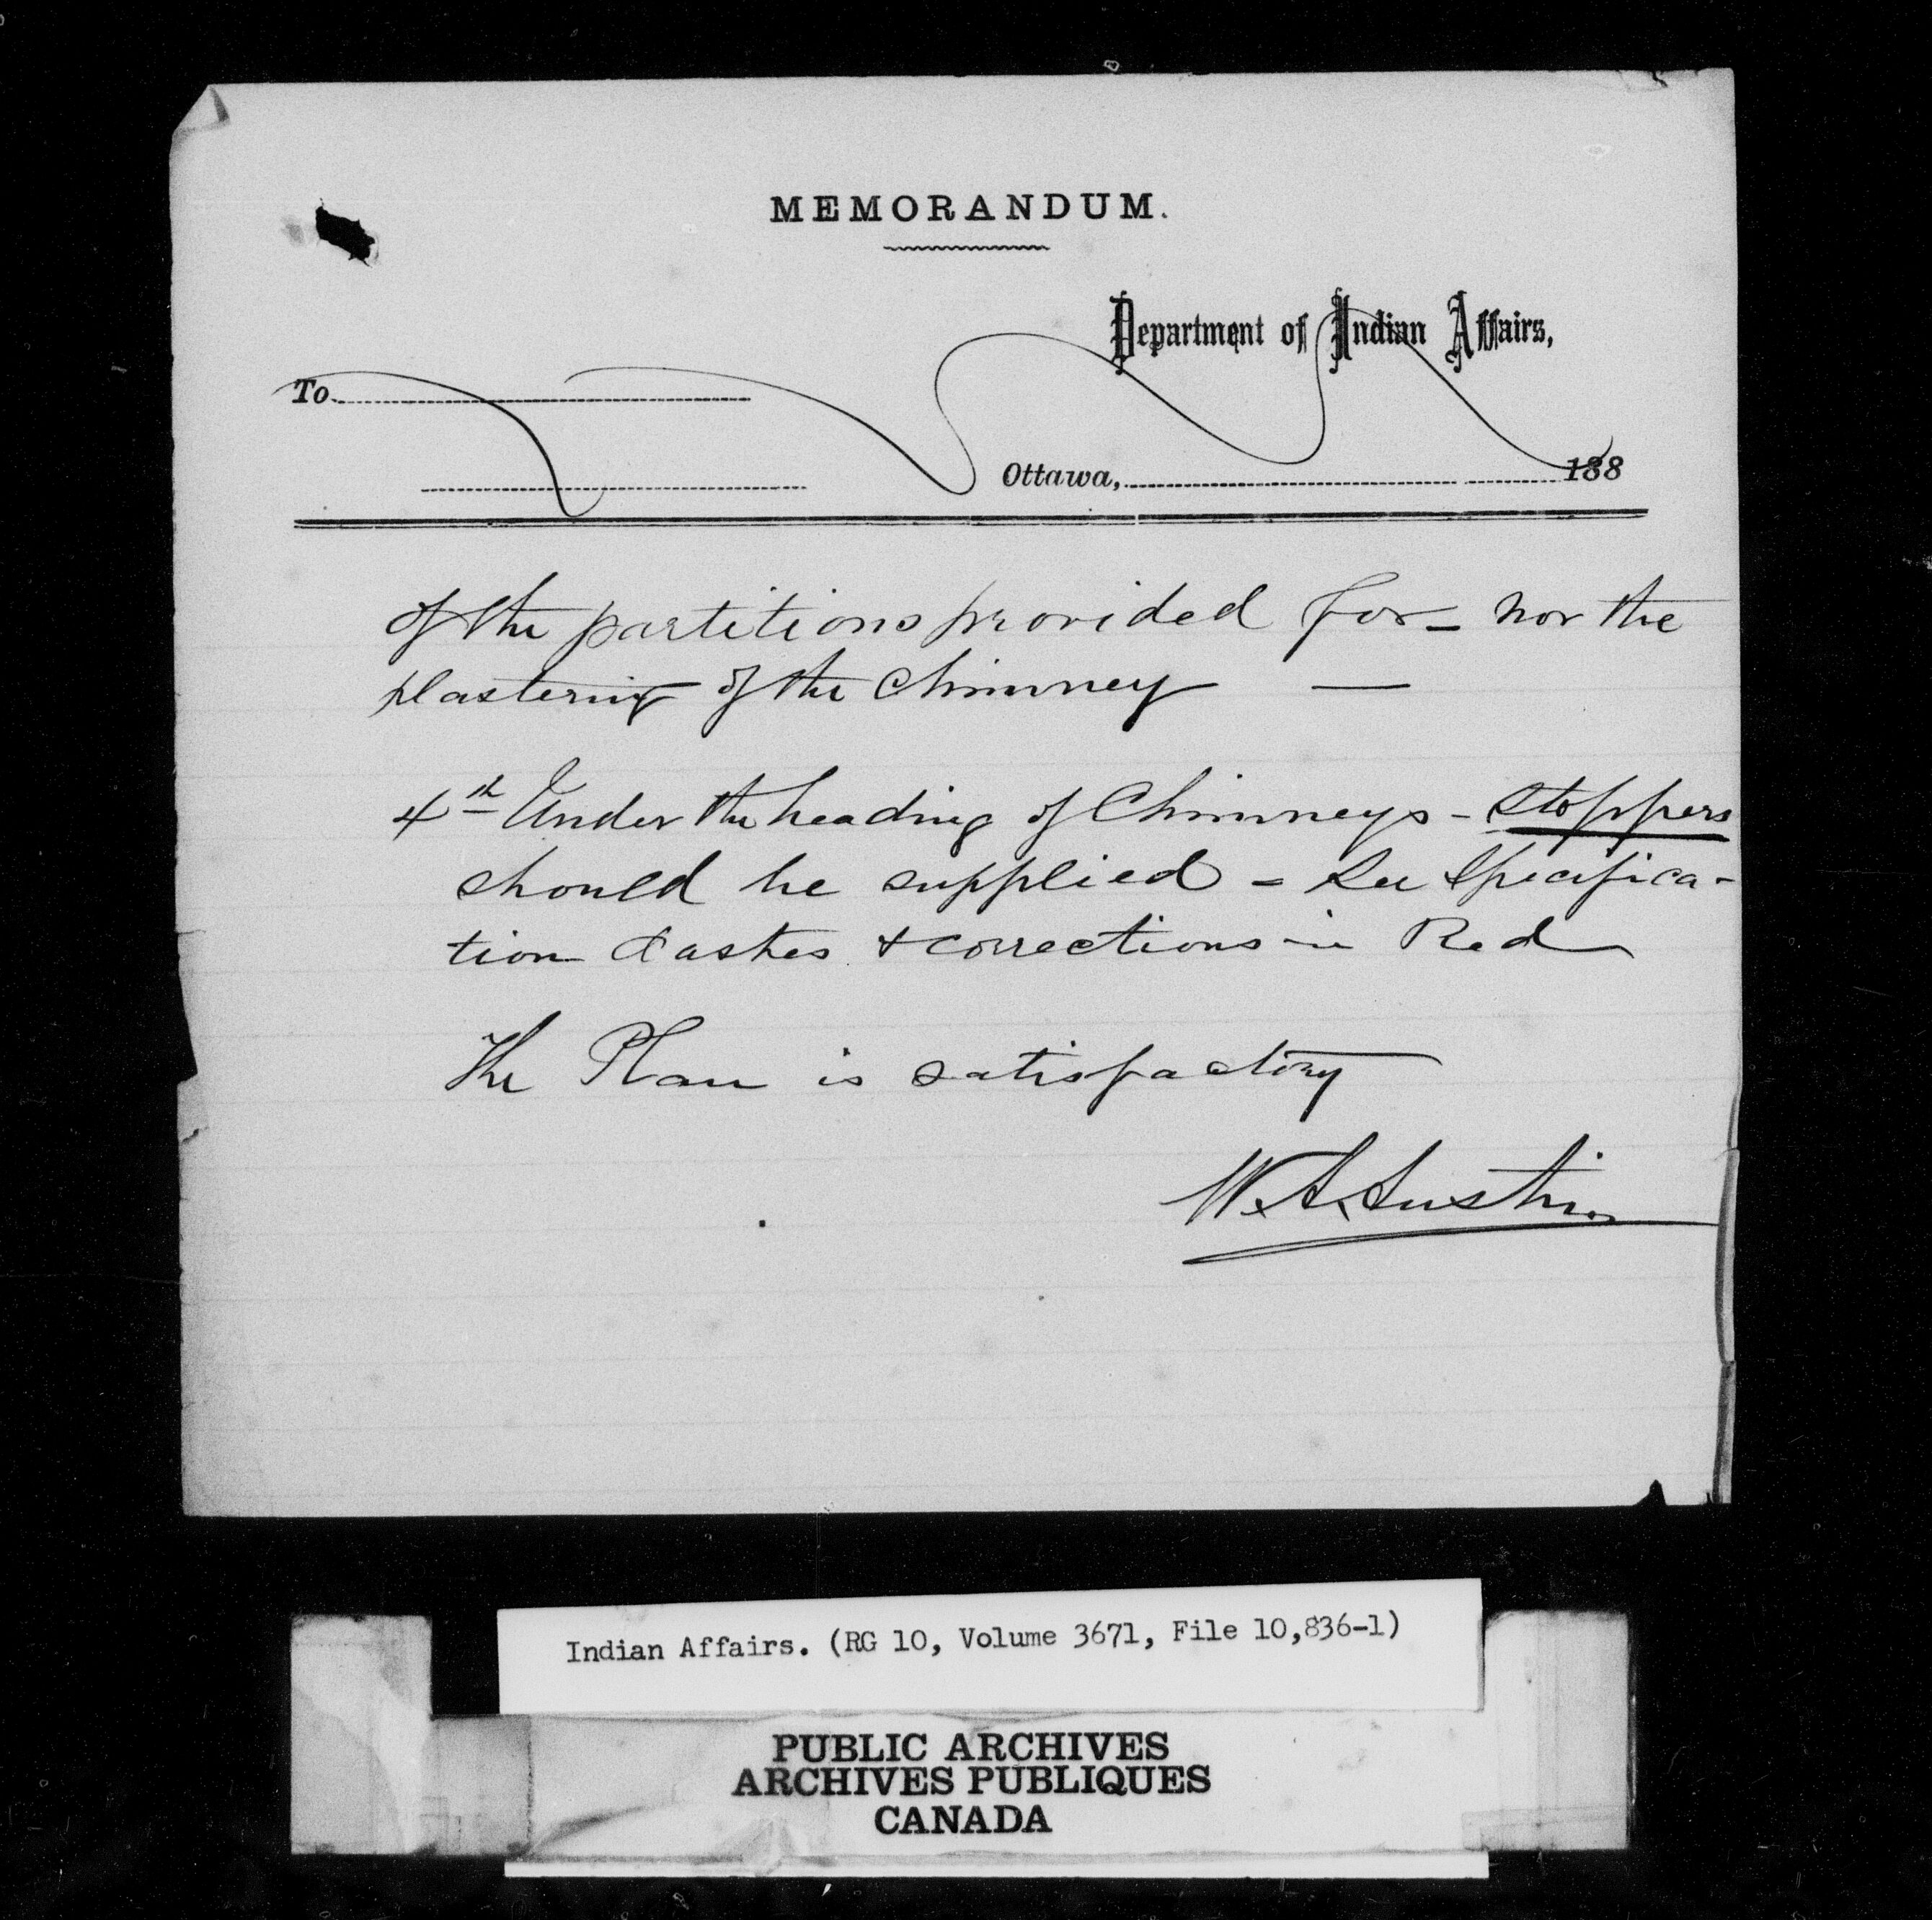 MEMORANDUM.
Department of Indian Affairs,
To
Ottawa, 188
of the partitions provided for - nor the
plastering of the Chimney —
4th Under the heading of Chimneys - Stoppers
should be supplied - See Specifica-
tion dashes & corrections in Red
The Plan is satisfactory
W. A. Austin
Indian Affairs. (RG 10, Volume 3671, File 10,836-1)
PUBLIC ARCHIVES
ARCHIVES PUBLIQUES
CANADA